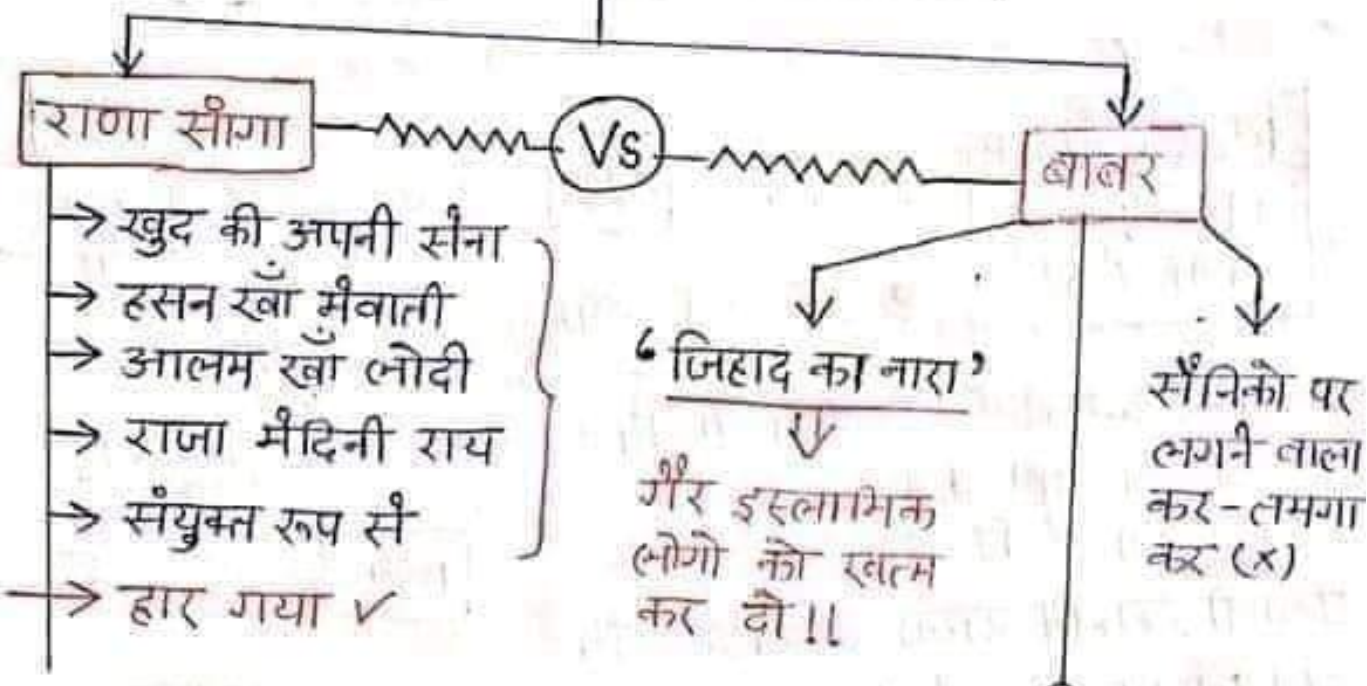 राणा साँगा
Vs
बाबर
खुद की अपनी सेना
हसन खाँ मेवाती
आलम खाँ लोदी
राजा मेदिनी राय
संयुक्त रूप से
हार गया ✓
‘जिहाद का नारा’
गैर इस्लामिक
लोगो को खत्म
कर दो!!
सैनिको पर
लगने वाला
कर-तमगा
कर (x)